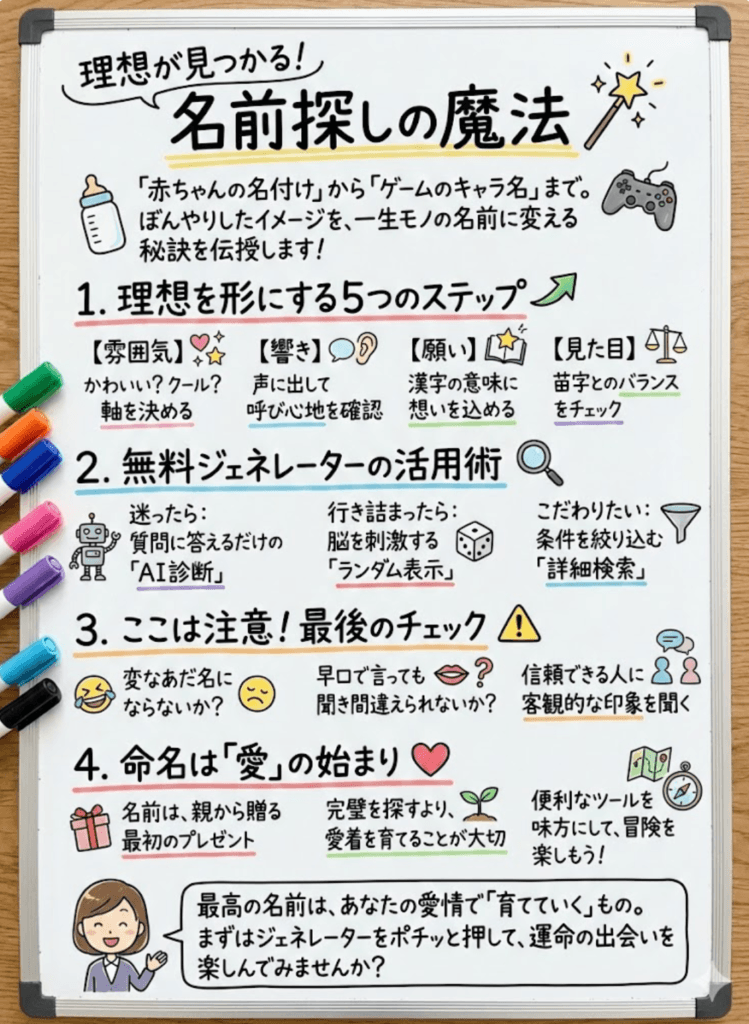 理想が見つかる!
名前探しの魔法
「赤ちゃんの名付け」から「ゲームのキャラ名」まで。
ぼんやりしたイメージを、一生モノの名前に変える
秘訣を伝授します!
1. 理想を形にする5つのステップ
【雰囲気】
かわいい?クール?
軸を決める
【響き】
声に出して
呼び心地を確認
【願い】
漢字の意味に
想いを込める
【見た目】
苗字とのバランス
をチェック
2. 無料ジェネレーターの活用術
迷ったら:
質問に答えるだけの
「AI診断」
行き詰まったら:
脳を刺激する
「ランダム表示」
こだわりたい:
条件を絞り込む
「詳細検索」
3. ここは注意!最後のチェック
変なあだ名に
ならないか?
早口で言っても
聞き間違えられないか?
信頼できる人に
客観的な印象を聞く
4. 命名は「愛」の始まり
名前は、親から贈る
最初のプレゼント
完璧を探すより、
愛着を育てることが大切
便利なツールを
味方にして、冒険を
楽しもう!
最高の名前は、あなたの愛情で「育てていく」もの。
まずはジェネレーターをポチッと押して、運命の出会いを
楽しんでみませんか?